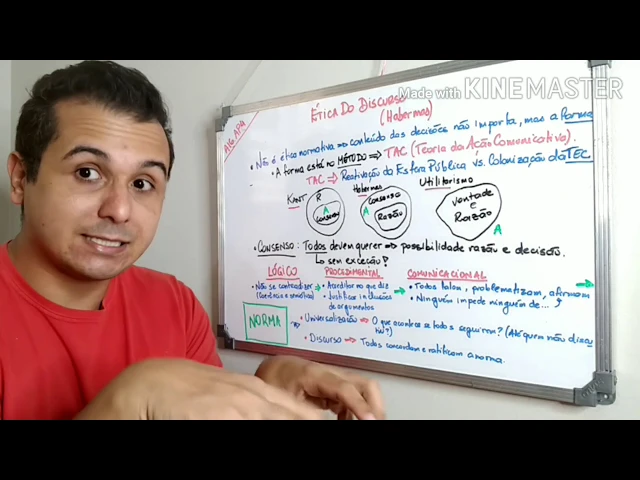 Made with KINEMASTER
ÉTICA DO DISCURSO
(Habermas)
• Não é ética normativa ⇒ conteúdo das decisões não importa, mas a forma
• A forma está no MÉTODO ⇒ TAC (Teoria da Ação Comunicativa).
TAC ⇒ Reativação da Esfera Pública vs. Colonização da TEC
KANT
Habermas
Utilitarismo
R
A
consenso
A
consenso
Razão
vontade
e
Razão
A
• CONSENSO: Todos devem querer ⇒ possibilidade razão e decisão.
↳ sem exceção?
LÓGICO
PROCEDIMENTAL
COMUNICACIONAL
• Não se contradizer
(Coerência e semântica)
• Acreditar no que diz
• Justificar inclusões
de argumentos
• Todos falam, problematizam, afirmam
• Ninguém impede ninguém de...
NORMA
• Universalização ⇒ O que acontece se todos seguirem? (Até quem não discu
tiu?)
• Discurso ⇒ Todos concordam e ratificam a norma.